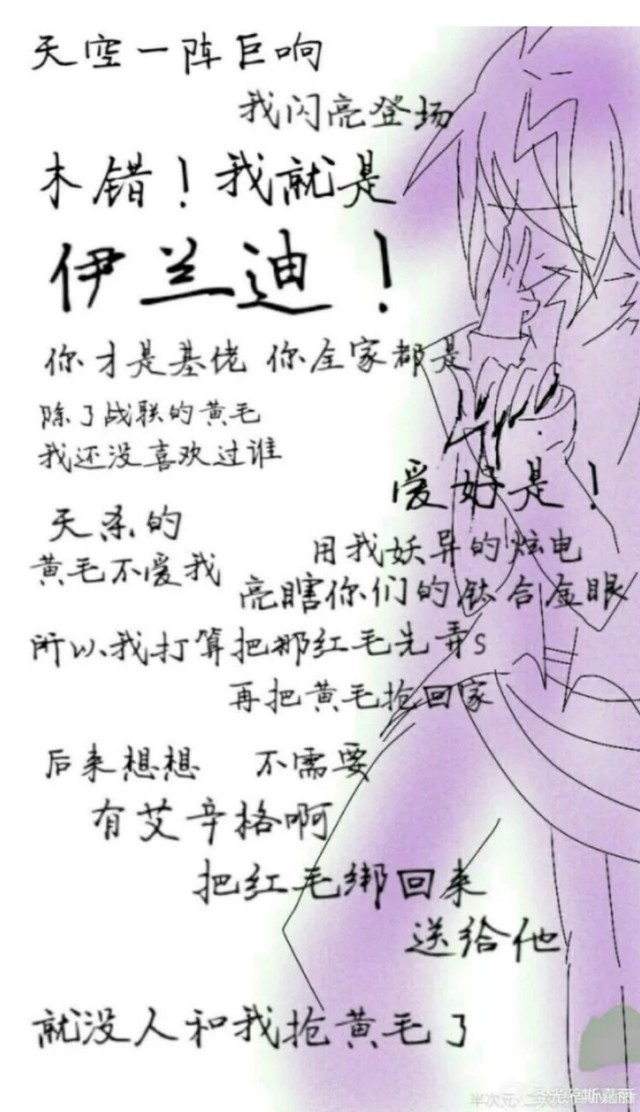 天空一阵巨响
我闪亮登场
木错！我就是
伊兰迪！
你才是基佬 你全家都是
除了战联的黄毛
我还没喜欢过谁
爱好是！
天杀的
黄毛不爱我
用我妖异的炫电
亮瞎你们的钛合金眼
所以我打算把那红毛先弄s
再把黄毛抢回家
后来想想 不需要
有艾辛格啊
把红毛绑回来
送给他
就没人和我抢黄毛了
半次元